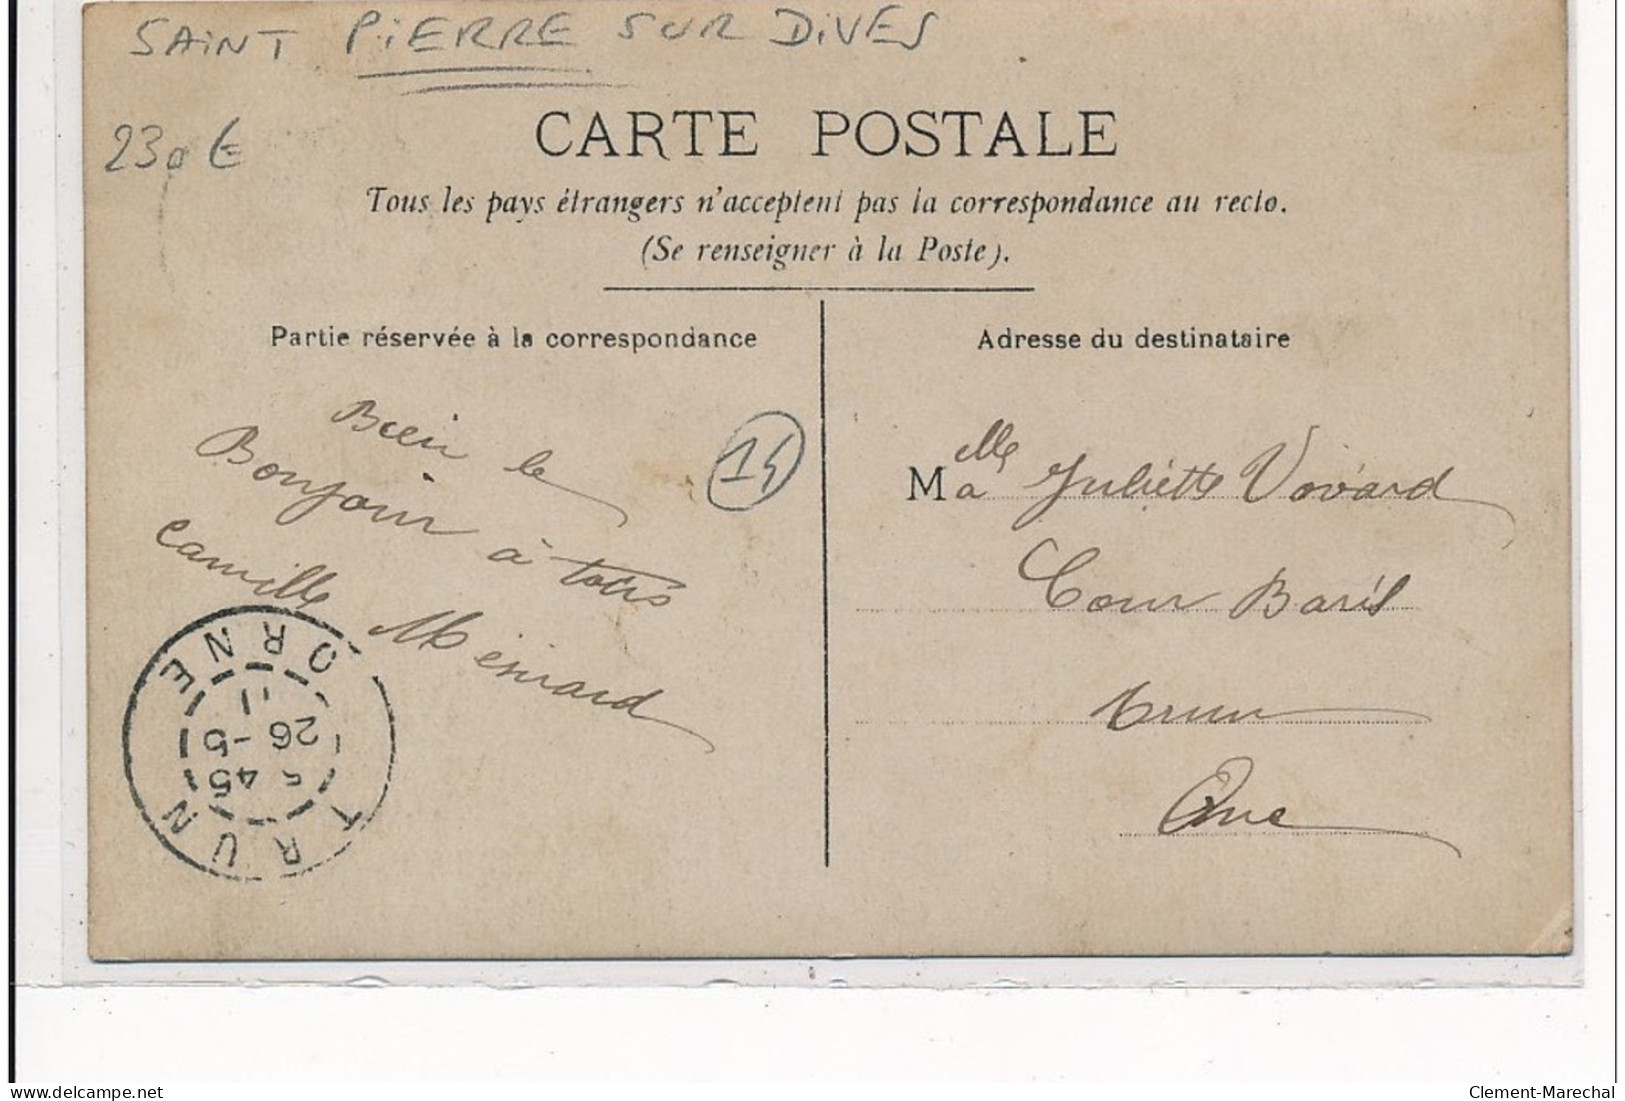 SAINT PIERRE SUR DIVES
230 €
CARTE POSTALE
Tous les pays étrangers n'acceptent pas la correspondance au recto.
(Se renseigner à la Poste).
Partie réservée à la correspondance
Bien le
Bonjour à tous
Camille Mesnard
14
ORNE
26-5
45
TRUN
Adresse du destinataire
Melle Juliette Vovard
Cour Baril
Trun
Orne
delcampe.net
Clement-Marechal